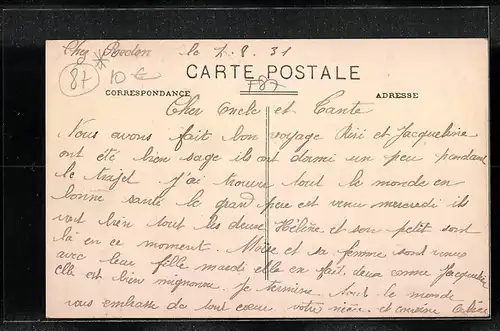 Chez Redon le 7.8.31
87
10 €
CARTE POSTALE
F87
CORRESPONDANCE
ADRESSE
Cher Oncle et Tante
Nous avons fait bon voyage Riri et Jacqueline
ont été bien sage ils ont dormi un peu pendant
le trajet J'ai trouvé tout le monde en
bonne santé le grand père est venu mercredi ils
vont bien tout les deux Hélène et son petit sont
là en ce moment. et sa femme sont venus
avec leur fille mardi elle en fait deux comme Jacqueline
elle est bien mignonne. Je termine tout le monde
vous embrasse de tout coeur votre nièce et